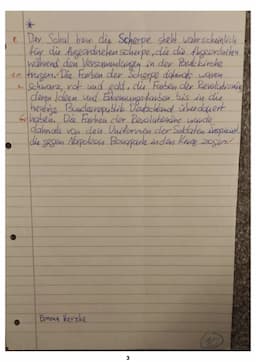 *
Der Schal bzw. die Scherpe steht wahrscheinlich
für die Abgeordnetenscherpe, die die Abgeordneten
während den Versammlungen in der Paulskirche
trugen. Die Farben der Scherpe damals waren
schwarz, rot und gold, die Farben der Revolutionäre,
deren Ideen und Erkennungsfarben bis in die
heutige Bundesrepublik Deutschland überdauert
haben. Die Farben der Revolutionäre wurde
damals von den Uniformen der Soldaten inspiriert
die gegen Napoleon Bonaparte in den Krieg zogen.
3